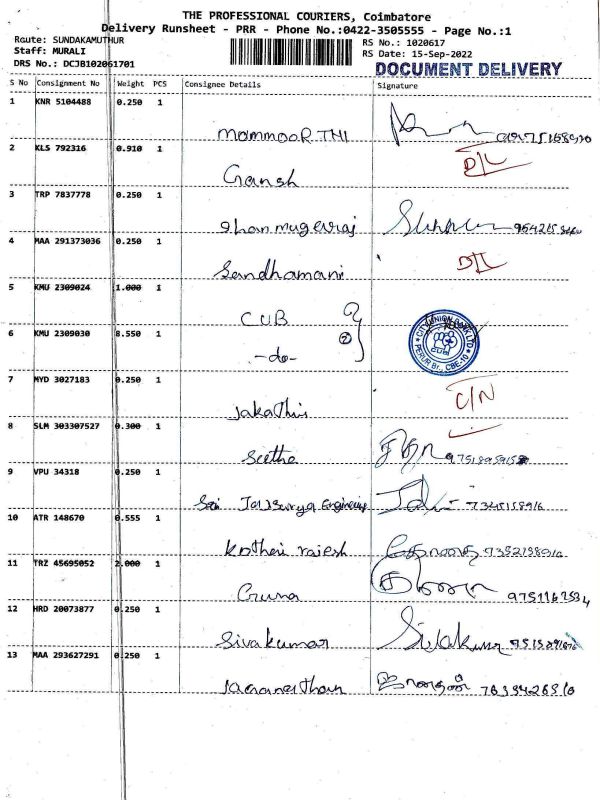 THE PROFESSIONAL COURIERS, Coimbatore
Delivery Runsheet - PRR - Phone No.:0422-3505555 - Page No.:1
Route: SUNDAKAMUTHUR
RS No.: 1020617
Staff: MURALI
RS Date: 15-Sep-2022
DRS No.: DCJB102061701
DOCUMENT DELIVERY
S No Consignment No Weight PCS Consignee Details Signature
1 KNR 5104488 0.250 1
2 KLS 792316 0.910 1
D/L
Gansh
3 TRP 7837778 0.250 1
Shanmugavraj
4 MAA 291373036 0.250 1
D/L
Sandhamani
5 KMU 2309024 1.000 1
CUB
CITY UNION BANK LTD.
PERUR Br., CBE-10
6 KMU 2309030 8.550 1
-do-
7 MYD 3027183 0.250 1
C/N
Jakathis
8 SLM 303307527 0.300 1
Seetha
9 VPU 34318 0.250 1
Sai Jaisurya Engineering
10 ATR 148670 0.555 1
Kothari rajesh
11 TRZ 45695052 2.000 1
Guna
12 HRD 20073877 0.250 1
Sivakumar Sivakumar
13 MAA 293627291 0.250 1